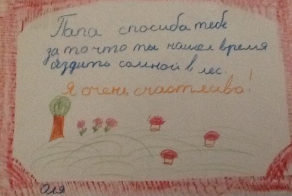 Папа спосиба тебе
за то что ты нашел время
ездить сомной в лес.
Я очень счастлива!
Оля